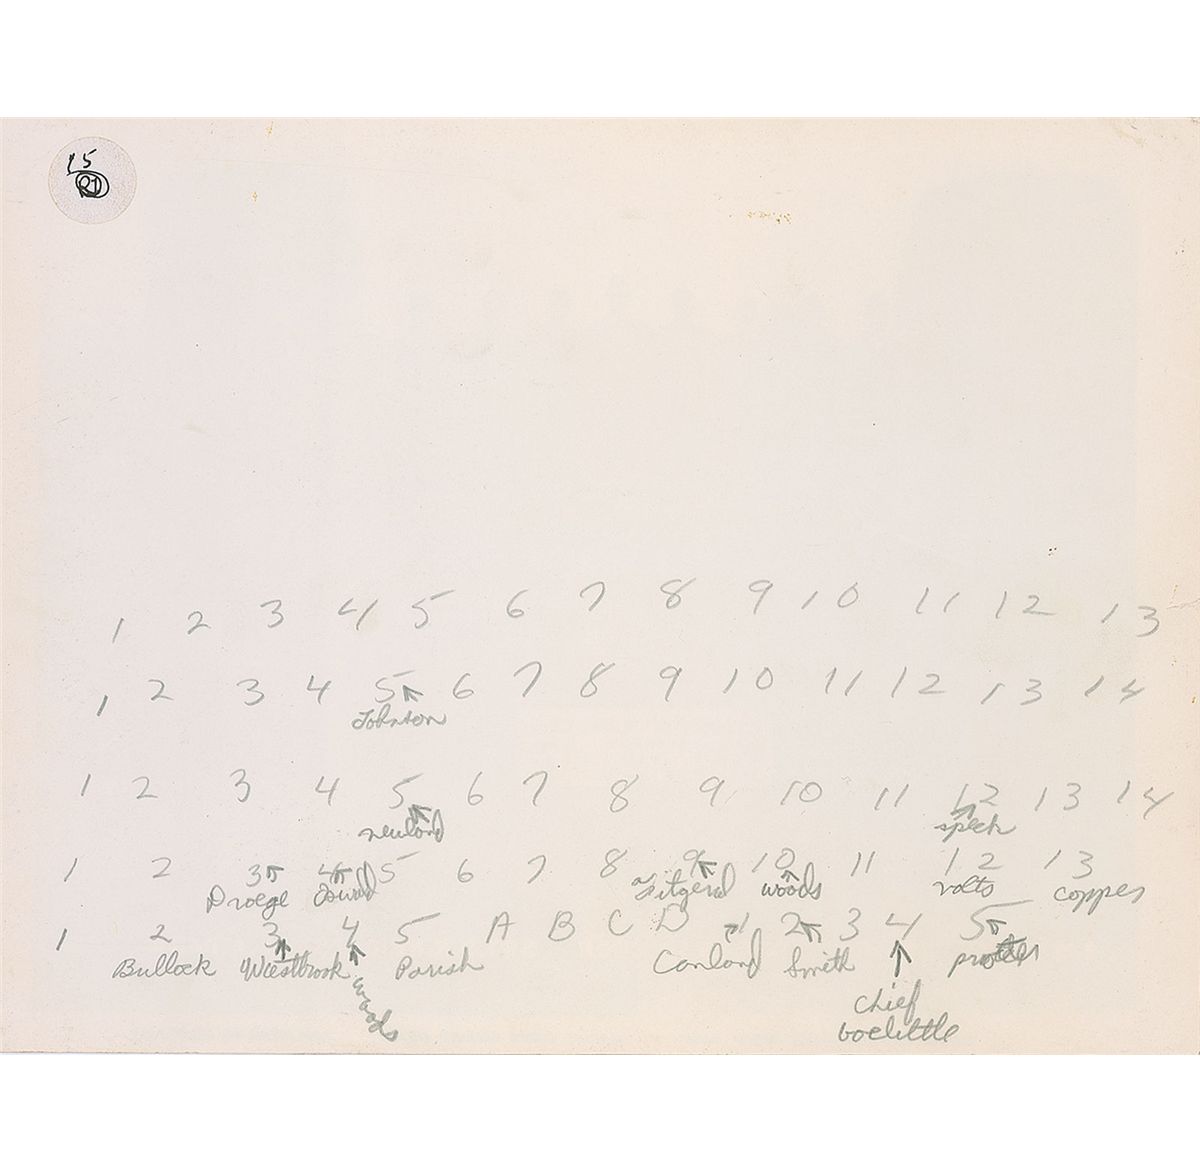 15
R1
1 2 3 4 5 6 7 8 9 10 11 12 13
1 2 3 4 5 6 7 8 9 10 11 12 13 14
Johnson
1 2 3 4 5 6 7 8 9 10 11 12 13 14
newland speck
1 2 3 4 5 6 7 8 9 10 11 12 13
Droege Fitzgerald woods volts coppes
1 2 3 4 5 A B C D 1 2 3 4 5
Bullock Westbrook Parish Conland Smith
woods
chief